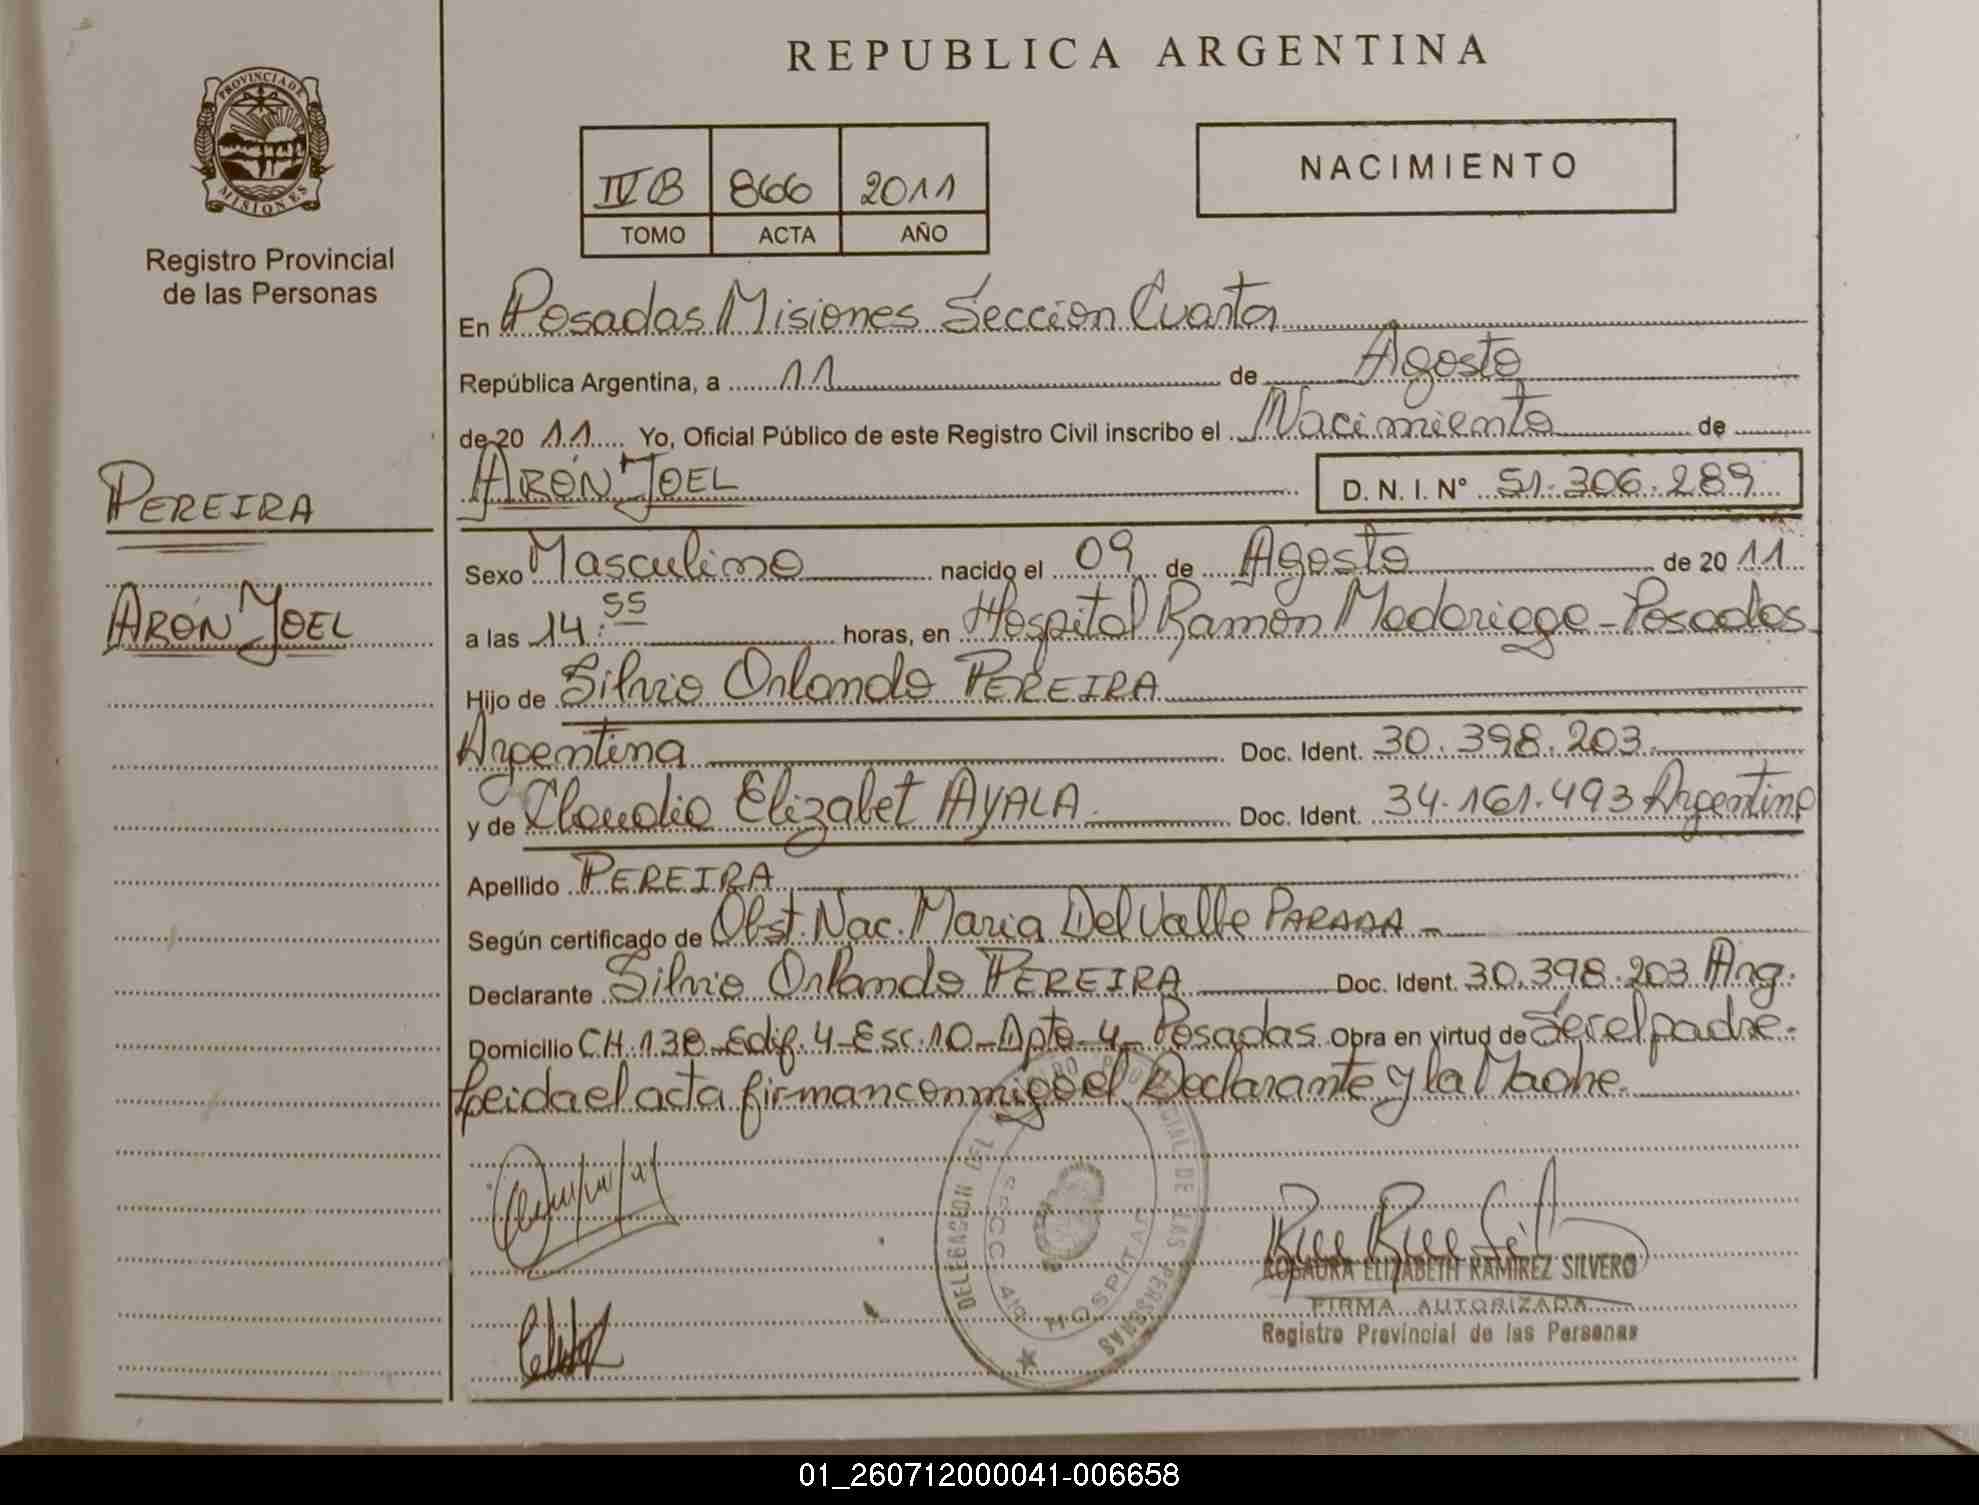 PROVINCIA DE
MISIONES
Registro Provincial
de las Personas
PEREIRA
ARÓN JOEL
REPUBLICA ARGENTINA
IV B 866 2011
TOMO ACTA AÑO
NACIMIENTO
En Posadas Misiones Sección Cuarta
República Argentina, a 11 de Agosto
de 20 11 Yo, Oficial Público de este Registro Civil inscribo el Nacimiento de
ARÓN JOEL D. N. I. N° 51.306.289
Sexo Masculino nacido el 09 de Agosto de 20 11
a las 14:55 horas, en Hospital Ramón Madariaga - Posadas
Hijo de Silvio Orlando PEREIRA
Argentina Doc. Ident. 30.398.203
y de Claudia Elizabet AYALA Doc. Ident. 34.161.493 Argentina
Apellido PEREIRA
Según certificado de Obst. Nac. Maria Del Valle PARADA -
Declarante Silvio Orlando PEREIRA Doc. Ident. 30.398.203 Arg.
Domicilio CH. 138 - Edif. 4 - Esc. 10 - Dpto - 4 - Posadas Obra en virtud de Ser el padre.
Leida el acta firman conmigo el Declarante y la Madre.
DELEGACION DEL REGISTRO PROVINCIAL DE LAS PERSONAS
SECC. 4ta HOSPITAL
ROSAURA ELIZABETH RAMIREZ SILVERO
FIRMA AUTORIZADA
Registro Provincial de las Personas
01_260712000041-006658